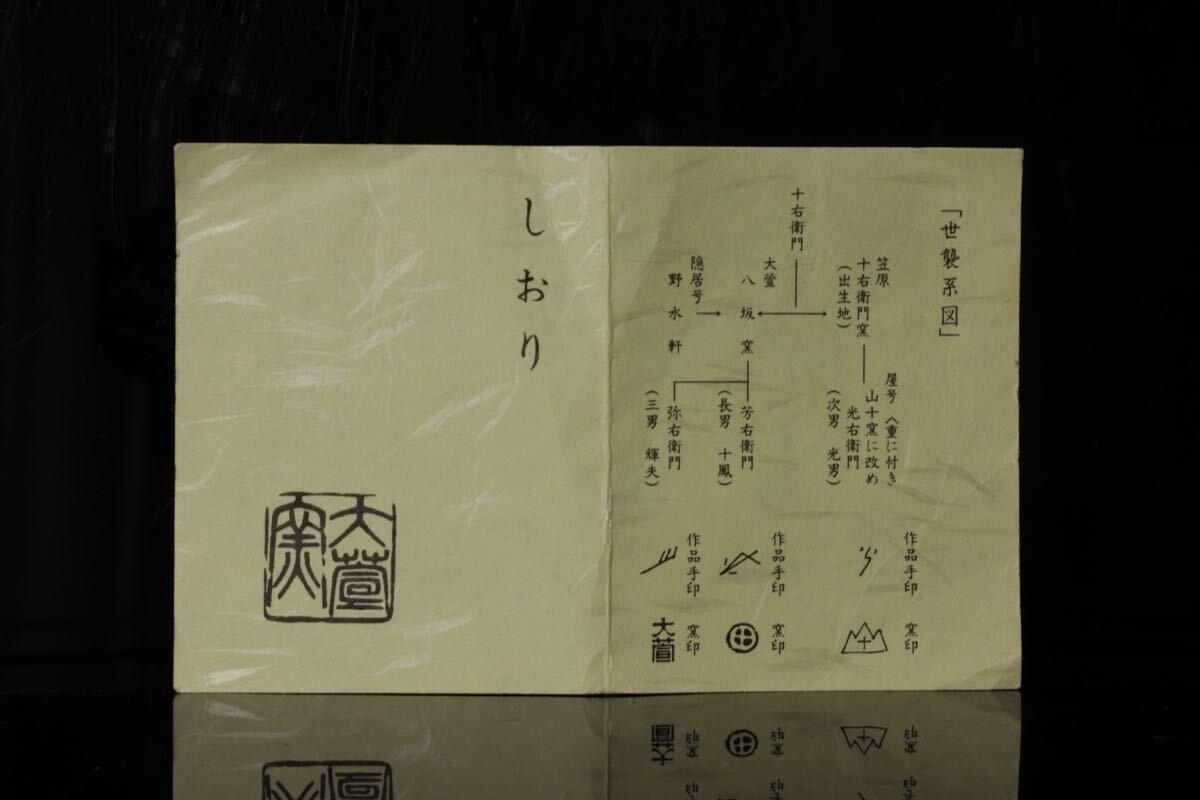 「世襲系図」
十右衛門
笠原
十右衛門窯
(出生地)
屋号 八重に付き
山十窯に改め
光右衛門
(次男 光男)
大萱
八坂窯
隠居号
野水軒
芳右衛門
(長男 十鳳)
弥右衛門
(三男 輝夫)
作品手印
窯印
十
作品手印
窯印
作品手印
窯印
大萱
しおり
大萱窯